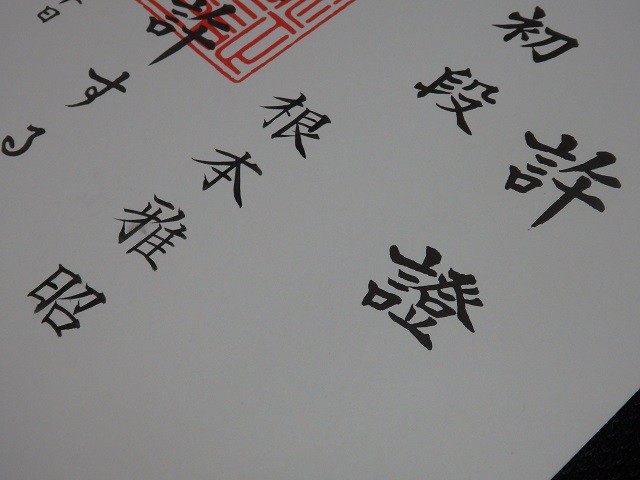 初段
許證
根本雅昭
許
する